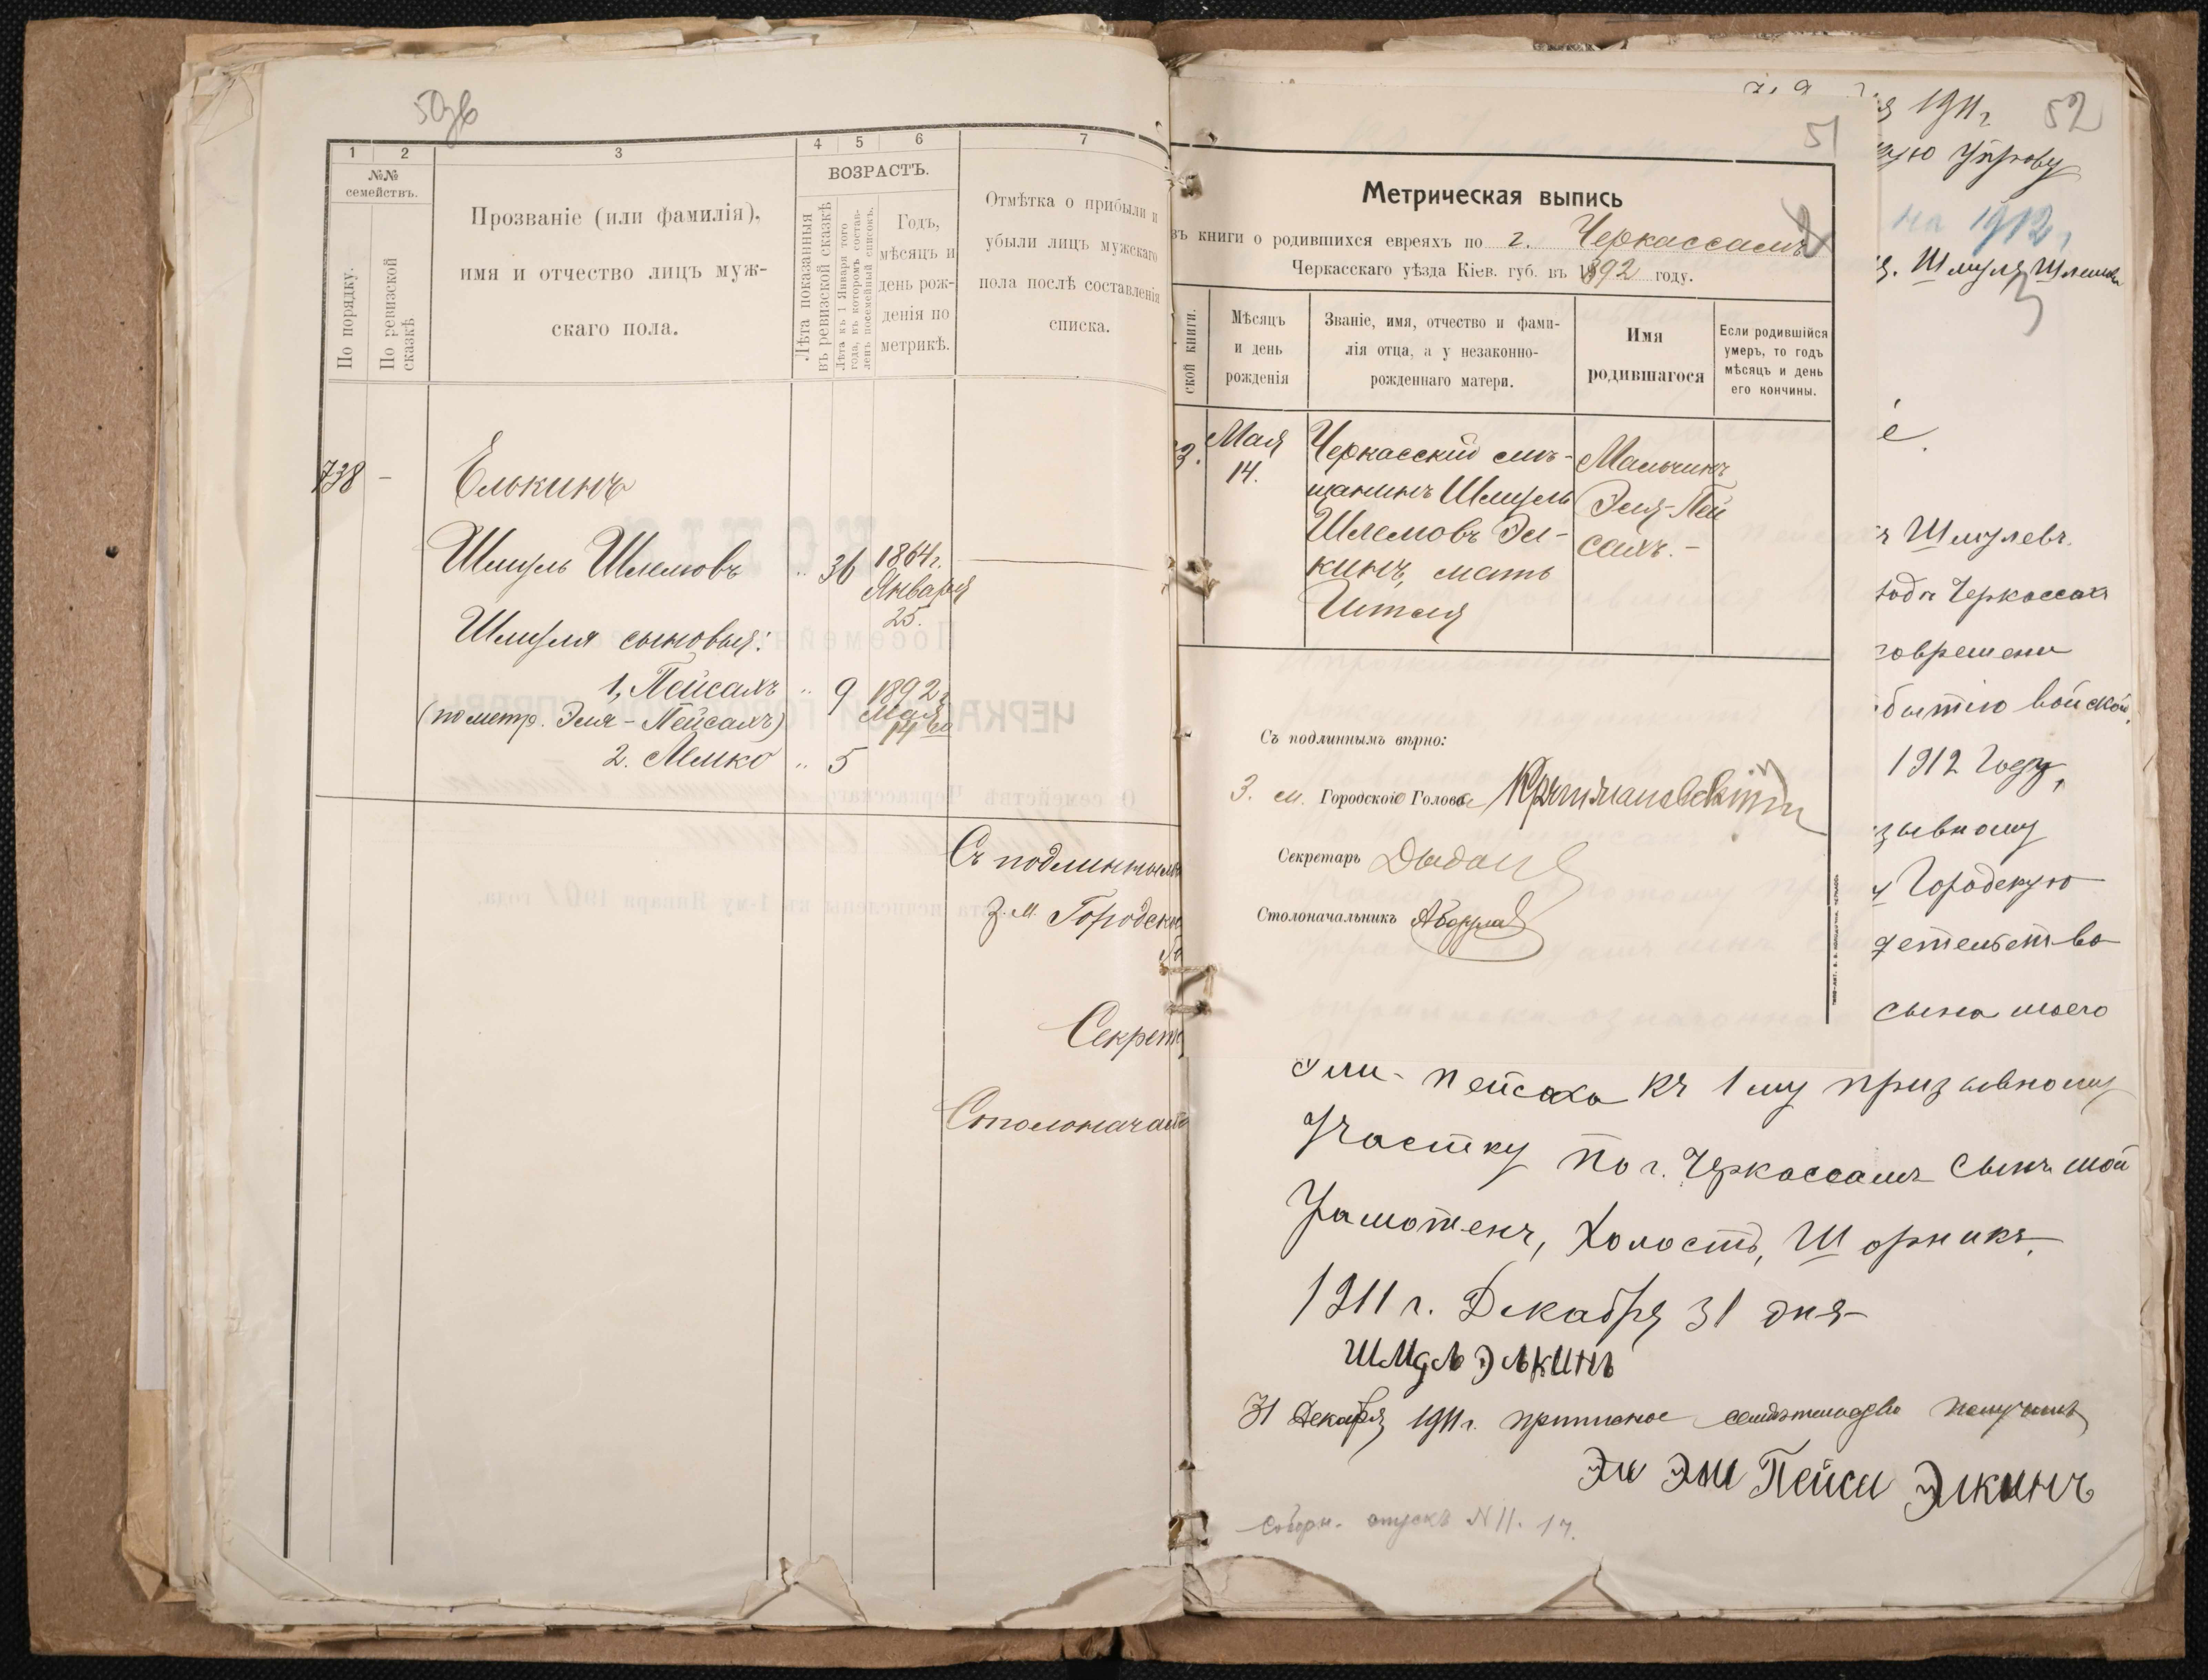 50об
1 2 3 4 5 6 7
№№ семействъ.
По порядку.
По ревизской сказкѣ
Прозваніе (или фамилія),
имя и отчество лицъ муж-
скаго пола.
ВОЗРАСТЪ.
Лѣта показанныя въ ревизской сказкѣ
Лѣта къ 1 Января того года, въ которомъ состав-ленъ посемейный списокъ.
Годъ,
мѣсяцъ и
день рож-
денія по
метрикѣ.
Отмѣтка о прибыли и
убыли лицъ мужскаго
пола послѣ составленія
списка.
738 -
Елькинъ
Шмуль Шлемовъ " 36 1864 г.
Января
25.
Шмуля сыновья:
1, Пейсахъ " 9 1892 г
(по метр. Эля-Пейсахъ) Мая
14 го
2. Лемко " 5
Съ подлиннымъ
З. м. Городско
Секрет
Столоначаль
51
Метрическая выпись
въ книги о родившихся евреяхъ по г. Черкассамъ
Черкасскаго уѣзда Кіев. губ. въ 1892 году.
ской книги.
Мѣсяцъ
и день
рожденія
Званіе, имя, отчество и фами-
лія отца, а у незаконно-
рожденнаго матери.
Имя
родившагося
Если родившійся
умеръ, то годъ
мѣсяцъ и день
его кончины.
3. Мая
14.
Черкасскій мѣ-
щанинъ Шмуль
Шлемовъ Эль-
кинъ, мать
Ител
Мальчикъ
Эля-Пей
сахъ. -
Съ подлиннымъ вѣрно:
З. м. Городского Головы
Секретарь
Столоначальникъ
52
я 1911 г
кую Управу
на 1912 г
Шмуля Шлемова
ъ Шмулевъ
года Черкассах
бытію войской
1912 Году,
зывному
у Городскую
детельство
сына моего
Эли-пейсаха къ 1 му призывному
Участку по г. Черкассамъ Сынъ мой
Грамотенъ, Холостъ, Шорникъ
1911 г. Декабря 31 дня
Шмуль Элькинъ
31 Декабря 1911 г. приписное свидѣтельство получилъ
Эли Пейси Элкинъ
отпускъ N 11. 17.